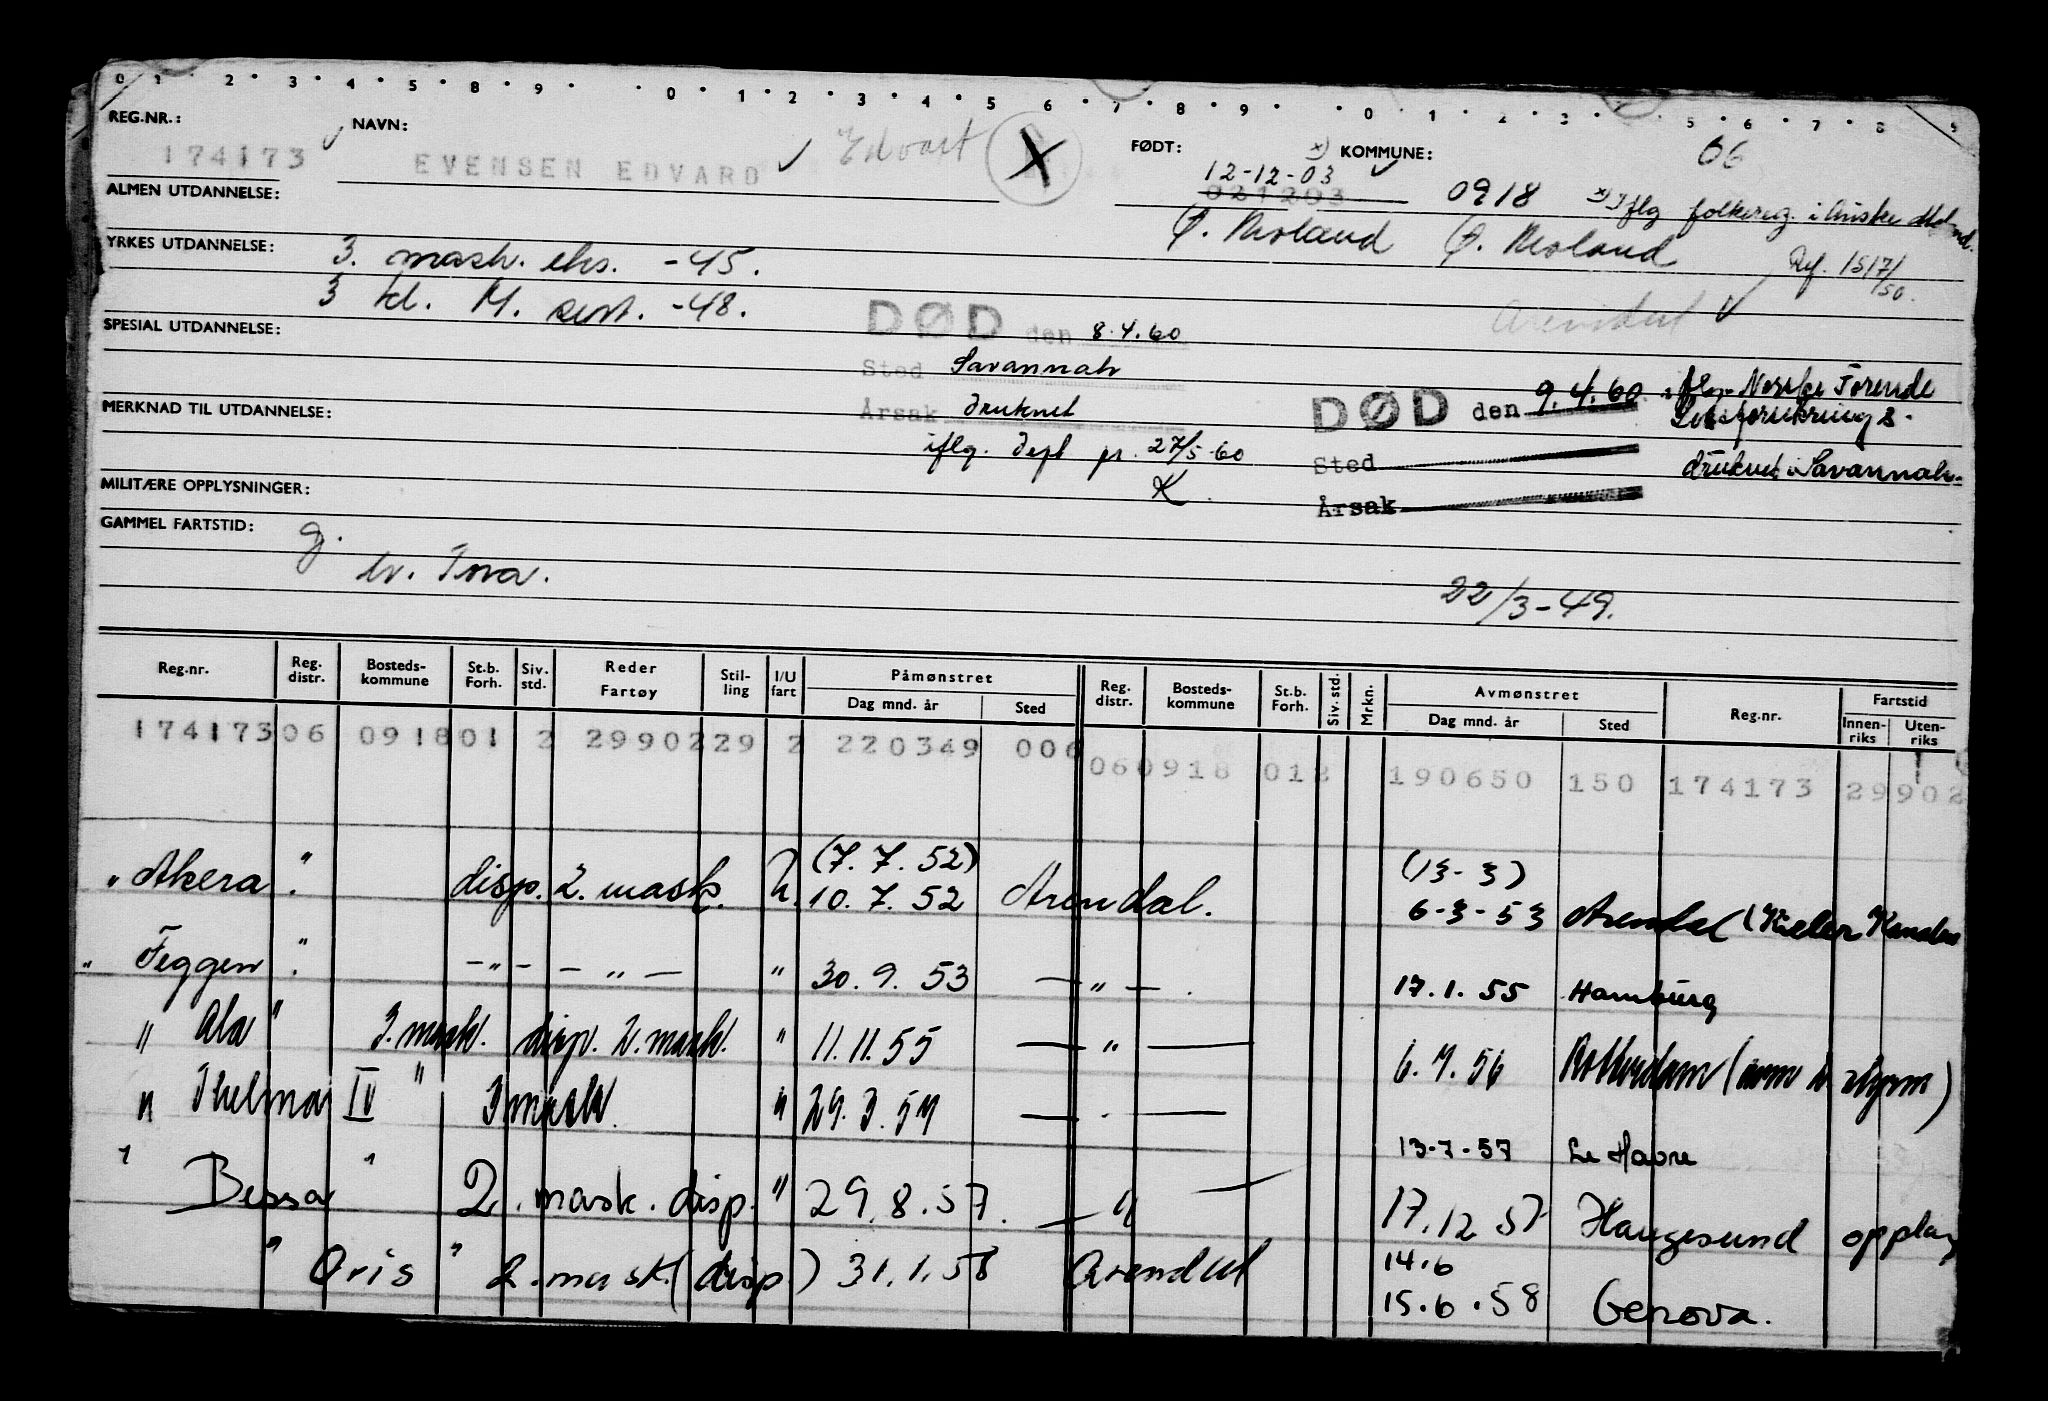 0 1 2 3 4 5 8 9 0 1 2 3 4 5 6 7 8 9 0 1 2 3 5 6 7 8 9
REG.NR.: NAVN: FØDT: KOMMUNE: 06
174173 EVENSEN EDVARD Edvart X 12-12-03
021203 0918 x) Iflg folkereg. i Austre Moland.
ALMEN UTDANNELSE: Ø. Moland Ø. Moland Ref. 1517/50.
YRKES UTDANNELSE: 3. mask. eks. -45.
3 kl. M. sert. -48. Arendal
SPESIAL UTDANNELSE: DØD den 8.4.60
Sted Savannah
MERKNAD TIL UTDANNELSE: Årsak druknet
DØD den 9.4.60 iflg. Norske Forende Livsforsikrings.
iflg. Dept pr. 27/5-60
Sted druknet i Savannah.
K
MILITÆRE OPPLYSNINGER: Årsak
GAMMEL FARTSTID: g.
tr. Tora. 22/3-49.
Reg.nr. Reg. distr. Bosteds-kommune St.b. Forh. Siv. std. Reder Fartøy Stil-ling I/U fart Påmønstret Dag mnd. år Sted Reg. distr. Bosteds-kommune St.b. Forh. Siv. std. Mrkn. Avmønstret Dag mnd. år Sted Reg.nr. Fartstid Innen-riks Uten-riks
174173 06 0918 01 2 29902 29 2 220349 006 06 0918 01 2 190650 150 174173 29902
(7.7.52) (13-3)
" Akera " disp. 2. mask. U. 10.7.52 Arendal. 6-3-53 Arendal (Kieler Kanalen
" Feggen " - " - - " - " 30.9.53 - " - . 17.1.55 Hamburg
" Ala " 3. mask. disp. 2. mask. " 11.11.55 - " - 6.7.56 Rotterdam
" Thelma IV " 3 mask. " 29.3.57 - . - 13-7-57 Le Havre
" Bessa " 2. mask. disp. " 29.8.57. - " - 17.12 57 Haugesund opplag
" Oris " 2. mask. (disp.) 31.1.58 Arendal 14.6
15.6.58 Genova.